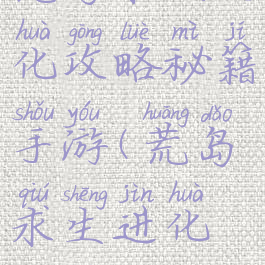 huà gōng lüè mì jí
化攻略秘籍
shǒu yóu huāng dǎo
手游(荒岛
qiú shēng jìn huà
求生进化